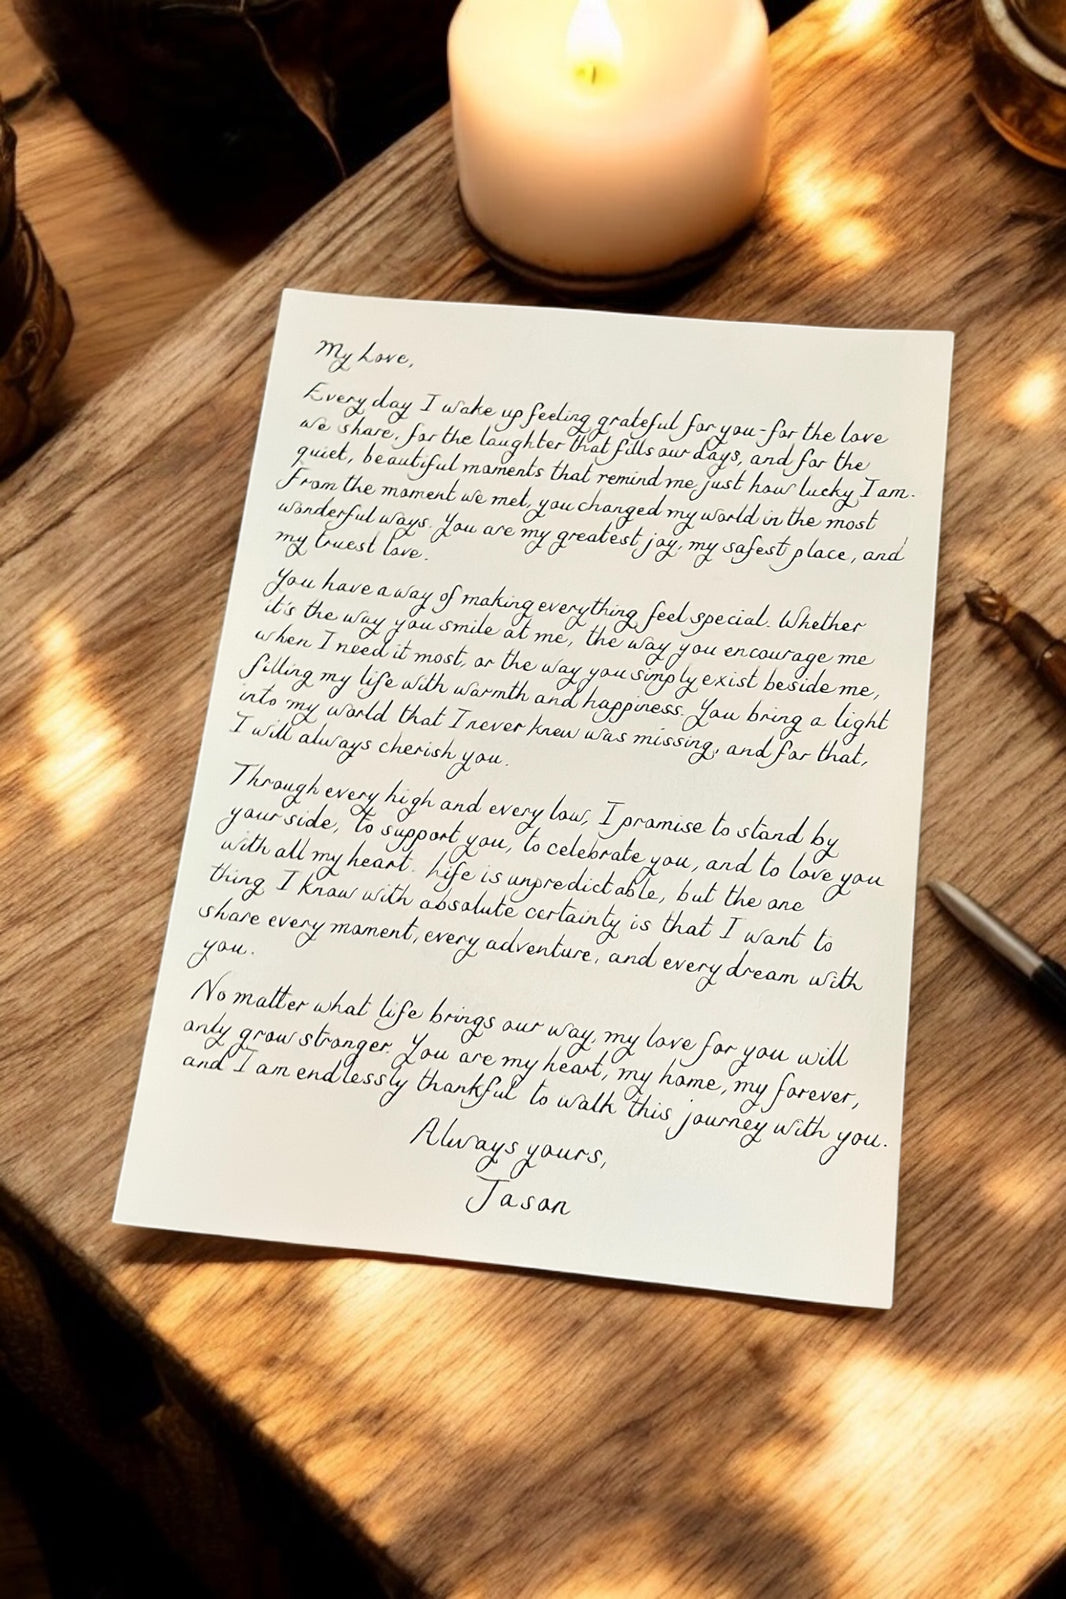 My Love,
Every day I wake up feeling grateful for you-for the love
we share, for the laughter that fills our days, and for the
quiet, beautiful moments that remind me just how lucky I am.
From the moment we met, you changed my world in the most
wonderful ways. You are my greatest joy, my safest place, and
my truest love.
You have a way of making everything feel special. Whether
it's the way you smile at me, the way you encourage me
when I need it most, or the way you simply exist beside me,
filling my life with warmth and happiness. You bring a light
into my world that I never knew was missing, and for that,
I will always cherish you.
Through every high and every low, I promise to stand by
your side, to support you, to celebrate you, and to love you
with all my heart. Life is unpredictable, but the one
thing I know with absolute certainty is that I want to
share every moment, every adventure, and every dream with
you.
No matter what life brings our way, my love for you will
only grow stronger. You are my heart, my home, my forever,
and I am endlessly thankful to walk this journey with you.
Always yours,
Jason